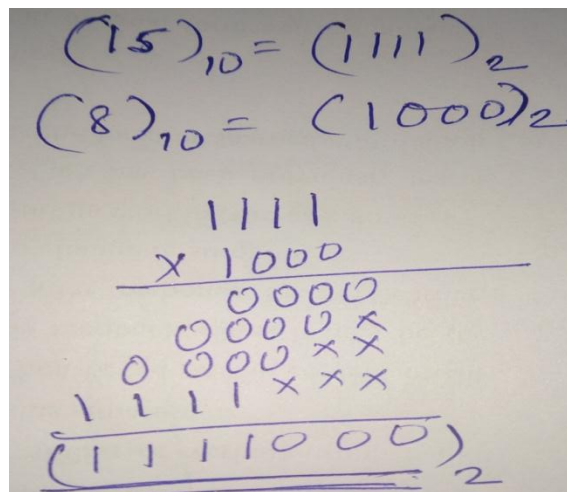 (15)₁₀ = (1111)₂
(8)₁₀ = (1000)₂
1111
× 1000
0000
0000 ×
0 000 × ×
1 1 1 1 × × ×
(1 1 1 1 0 0 0)₂